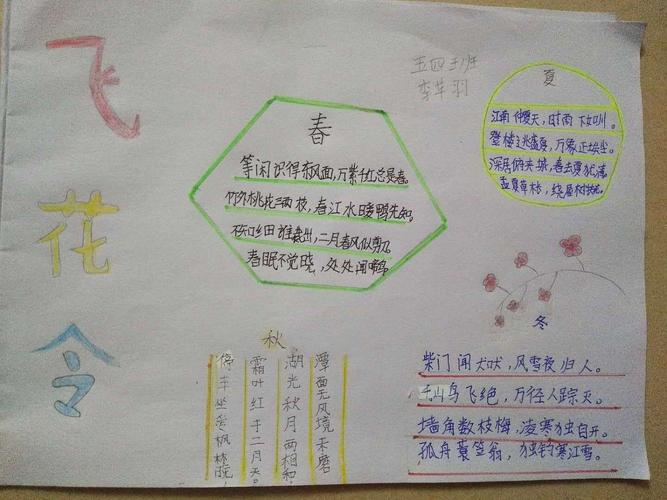 飞花令
五四班
春
等闲识得东风面,万紫千红总是春。
竹外桃花三两枝,春江水暖鸭先知。
二月春风似剪刀
春眠不觉晓,处处闻啼鸟
夏
江南仲夏天,时雨下如川。
登楼逃盛夏,万象正埃尘。
深居俯夹城,春去夏犹清
孟夏草木长,绕屋树扶疏。
秋
潭面无风境未磨
湖光秋月两相和
霜叶红于二月天。
停车坐爱枫林晚,
冬
柴门闻犬吠,风雪夜归人。
千山鸟飞绝,万径人踪灭。
墙角数枝梅,凌寒独自开。
孤舟蓑笠翁,独钓寒江雪。